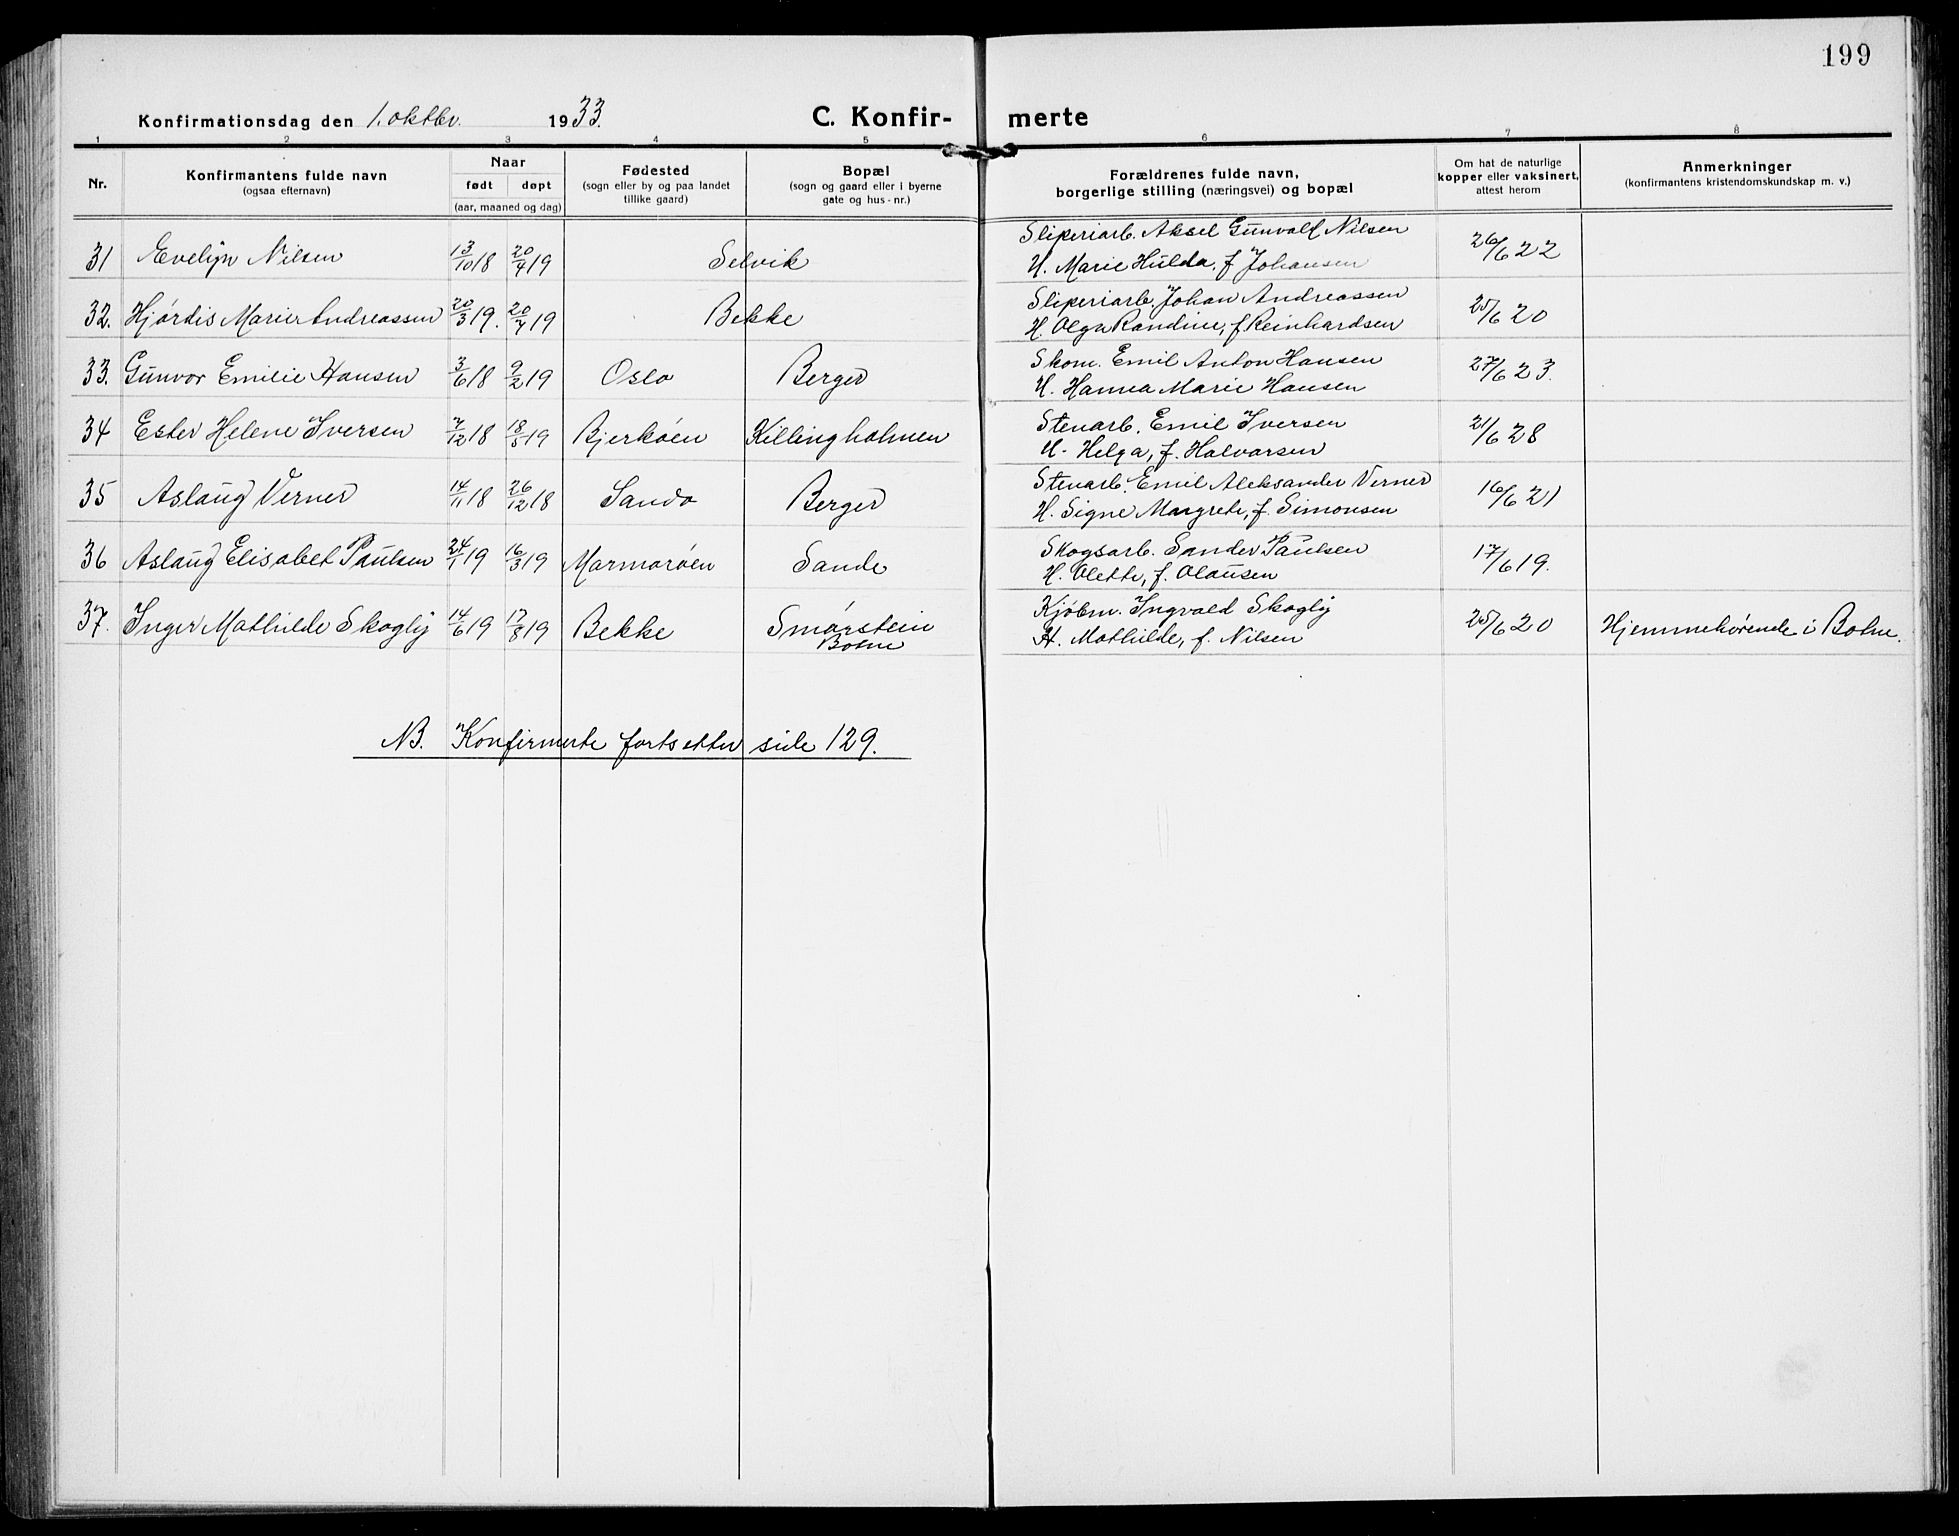 199
Konfirmationsdag den 1. oktbr. 1933. C. Konfir- merte
1 2 3 4 5 6 7 8
Nr. Konfirmantens fulde navn (ogsaa efternavn) Naar født døpt (aar, maaned og dag) Fødested (sogn eller by og paa landet tillike gaard) Bopæl (sogn og gaard eller i byerne gate og hus-nr.) Forældrenes fulde navn, borgerlige stilling (næringsvei) og bopæl Om hat de naturlige kopper eller vaksinert, attest herom Anmerkninger (konfirmantens kristendomskundskap m. v.)
31 Evelyn Nilsen 13/10 18 20/4 19 Selvik Sliperiarb. Aksel Gunvald Nilsen 26/6 22
H. Marie Hulda, f. Johansen
32. Hjørdis Marie Andreassen 20/3 19. 20/7 19 Bekke Sliperiarb. Johan Andreassen 25/6 20
H. Olga Randine, f. Reinhardsen
33. Gunvor Emilie Hansen 3/6 18 9/2 19 Oslo Berger Skom. Emil Anton Hansen 27/6 23.
H. Hanna Marie Hansen
34 Ester Helene Iversen 7/12 18 18/5 19 Bjerkøen Killingholmen Stenarb. Emil Iversen 21/6 28
H. Helga, f. Halvorsen
35 Aslaug Verner 14/11 18 26/12 18 Sande Berger Stenarb. Emil Aleksander Verner 16/6 21
H. Signe Margrete, f. Simonsen
36 Aslaug Elisabet Paulsen 24/1 19 16/3 19 Marmorøen Sande Skogsarb. Sander Paulsen 17/6 19.
H. Olette, f. Olausen
37. Inger Mathilde Skogly 14/6 19 17/8 19 Bekke Smørstein Botne Kjøbm. Ingvald Skogly 25/6 20 Hjemmehørende i Botne.
H. Mathilde, f. Nilsen
NB. Konfirmerte fortsetter side 129.